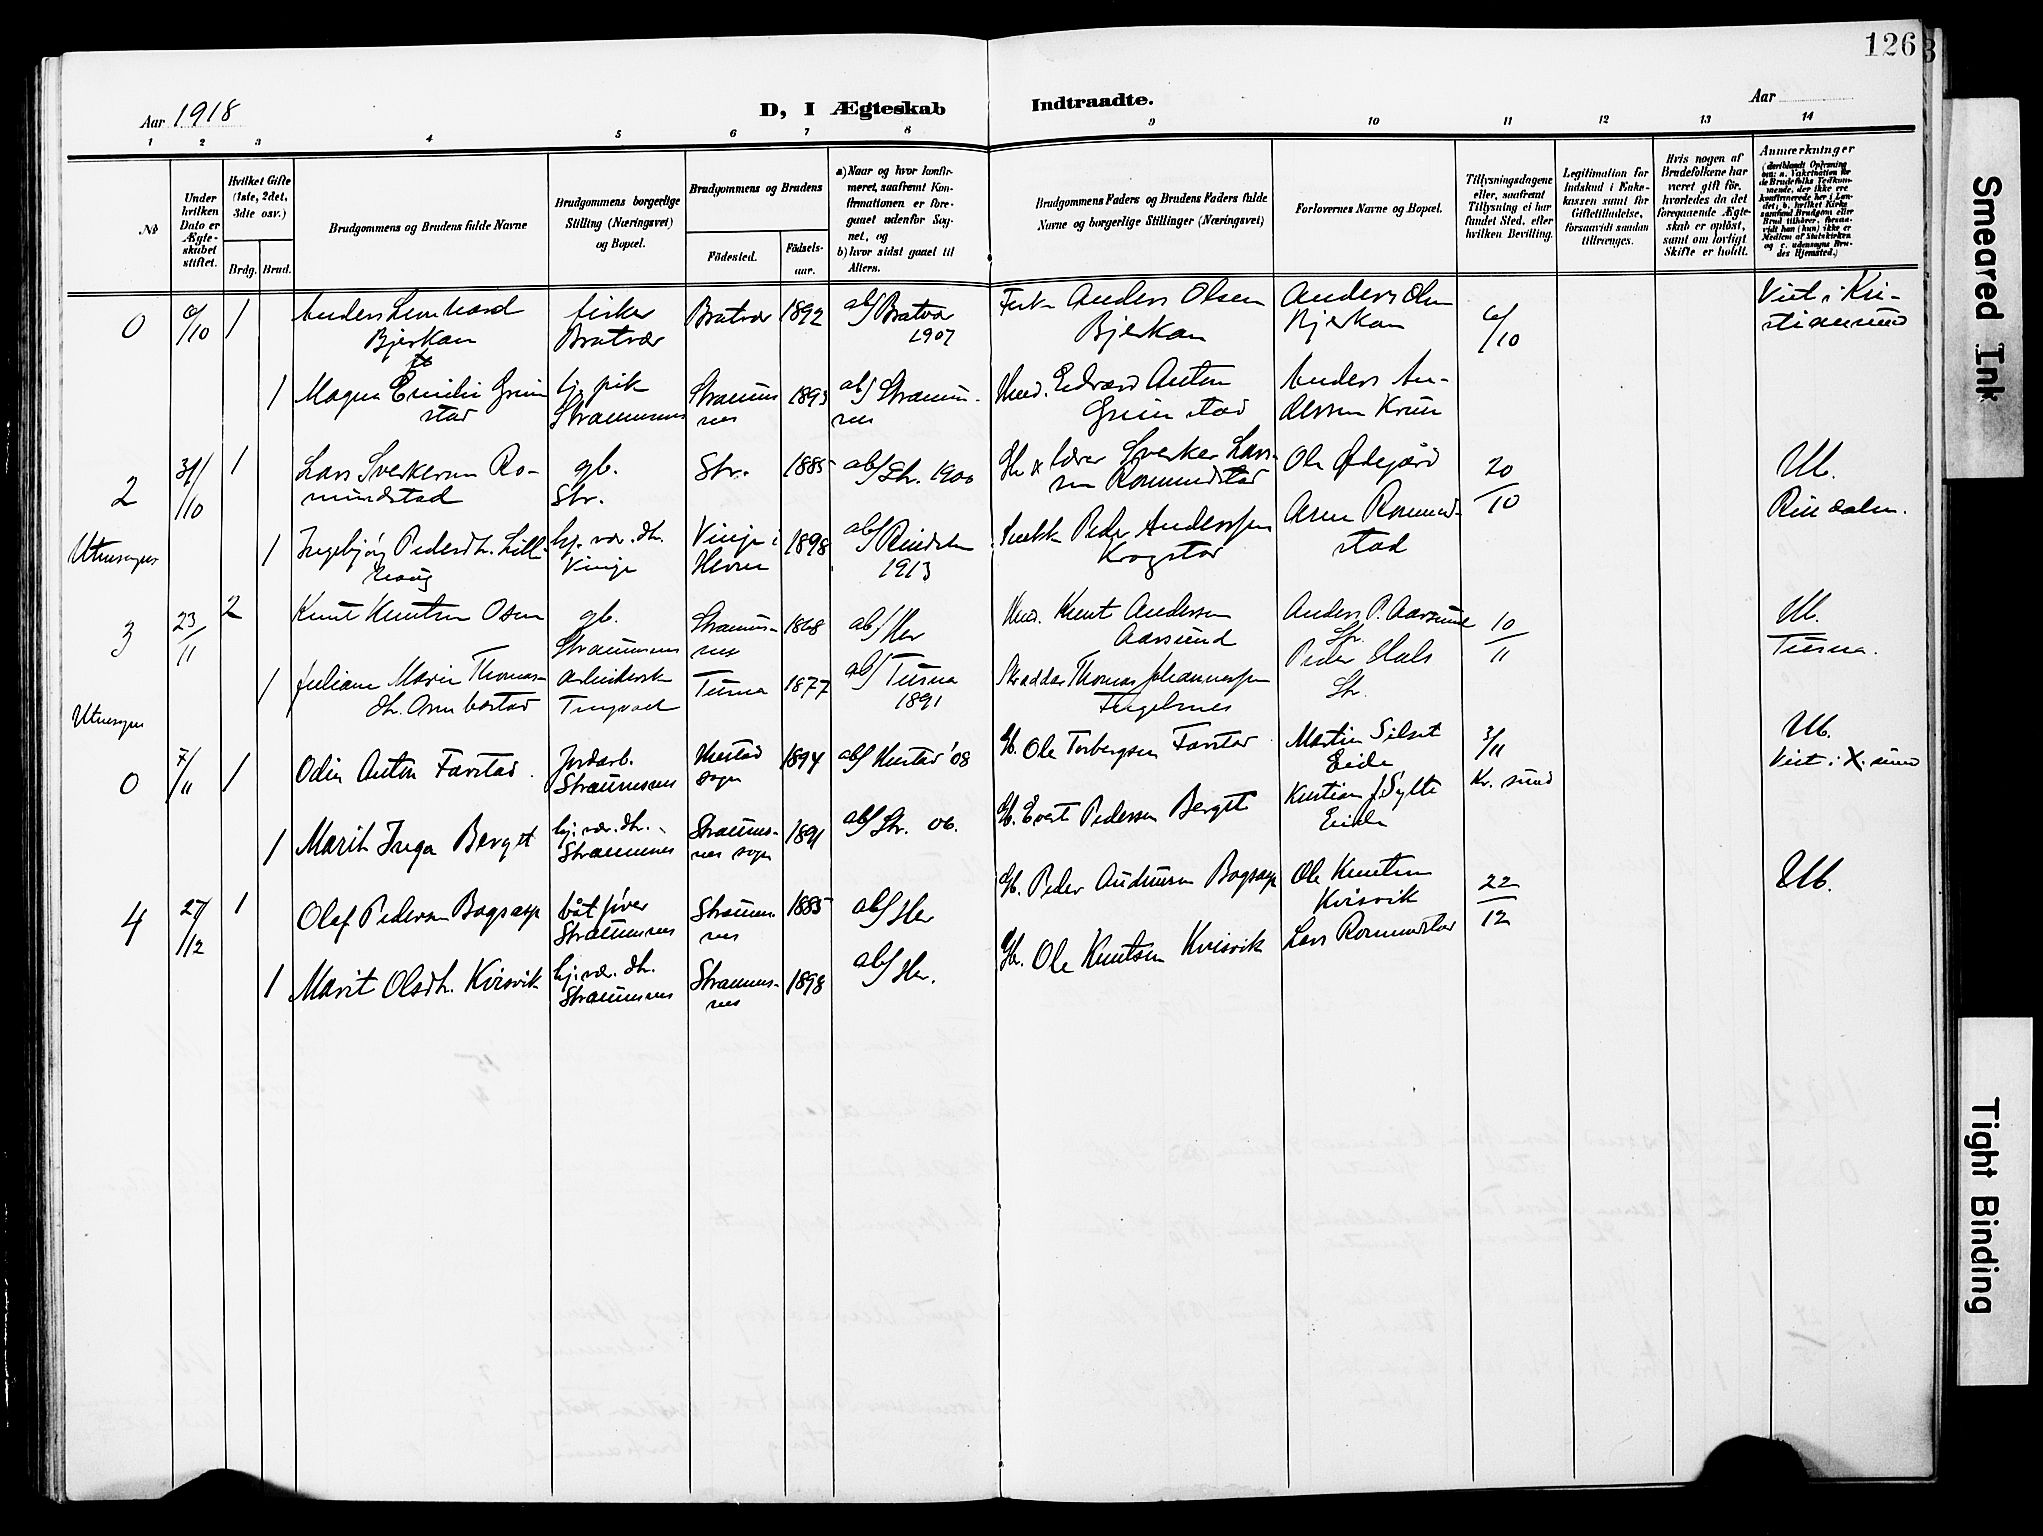 126
Aar 1918
D, I Ægteskab Indtraadte.
Aar
1 2 3 4 5 6 7 8 9 10 11 12 13 14
No
Under hvilken Dato er Ægteskabet stiftet.
Hvilket Gifte (1ste, 2det, 3die osv.)
Brdg. Brud.
Brudgommens og Brudens fulde Navne
Brudgommens borgerlige Stilling (Næringsvei) og Bopæl.
Brudgommens og Brudens
Fødested. Fødselsaar.
a) Naar og hvor konfirmeret, saafremt Konfirmationen er foregaaet udenfor Sognet, og
b) hvor sidst gaaet til Alters.
Brudgommens Faders og Brudens Faders fulde Navne og borgerlige Stillinger (Næringsvei)
Forlovernes Navne og Bopæl.
Tillysningsdagene eller, saafremt Tillysning ei har fundet Sted, efter hvilken Bevilling.
Legitimation for Indskud i Enkekassen samt for Giftetilladelse, forsaavidt saadan tiltrænges.
Hvis nogen af Brudefolkene har været gift før, hvorledes da det foregaaende Ægteskab er opløst, samt om lovligt Skifte er holdt.
Anmærkninger
0 6/10 1 Anders Leonhard Bjerkan
fisker Bratvær
Bratvær 1892
ab/ Bratvær 1907
Fisk. Anders Olsen Bjerkan
Anders Olsen Bjerkan
6/10
Viet i Kristiansund
1 Magna Emilie Grimstad
hj. pik Straumsnes
Straumsnes 1893
ab/ Straumsnes
Edvard Anton Grimstad
Anders Anderssen
2 31/10 1 Lars Sverkersen Romundstad
gb. Str.
Str. 1885
ab/ Str. 1900
Gb. & lærer Sverker Larssen Romundstad
Ole Ødegård
20/10
Ub.
Rindalen.
Utensogns
1 Ingebjørg Pedersdtr. Lillehaug
hj. vær. dtr. Vinje
Vinje i Hevne 1898
ab/ Rindalen 1913
Peder Anderssen Krogstad
Arne Romundstad
3 23/11 2 Knut Knutsen Osen
gb. Straumsnes
Straumsnes 1868
ab/ Her
Knut Andersen Aarsund
Anders P. Aarsund Str.
10/11
Ub.
Tusna.
1 Juliane Marie Thomasdtr. Armbostad
arbeiderske Tingvoll
Tusna 1877
ab/ Tusna 1891
Skrædder Thomas Johannessen
Peder Hals Str.
Utensogns
0 7/11 1 Odin Anton Farstad
Jordarb. Straumsnes
Hustad sogn 1894
ab/ Hustad '08
Gb. Ole Torbergsen Farstad
Martin Silset Eide
3/11
Kr. sund
Ub.
Viet i X. sund
1 Marit Inga Berget
hj. vær. dtr. Straumsnes
Straumsnes sogn 1891
ab/ Str. 06.
Gb. Evert Pedersen Berget
Kristian J. Sylte Eide
4 27/12 1 Olaf Pedersen Bogsasp
båtfører Straumsnes
Straumsnes 1885
ab/ Her
Gb. Peder Audunsen Bogsasp
Ole Knutsen Kvisvik
22/12
Ub.
1 Marit Olsdtr. Kvisvik
hj. vær. dtr. Straumsnes
Straumsnes 1898
ab/ Her.
Gb. Ole Knutsen Kvisvik
Lars Romundstad
Smeared Ink
Tight Binding